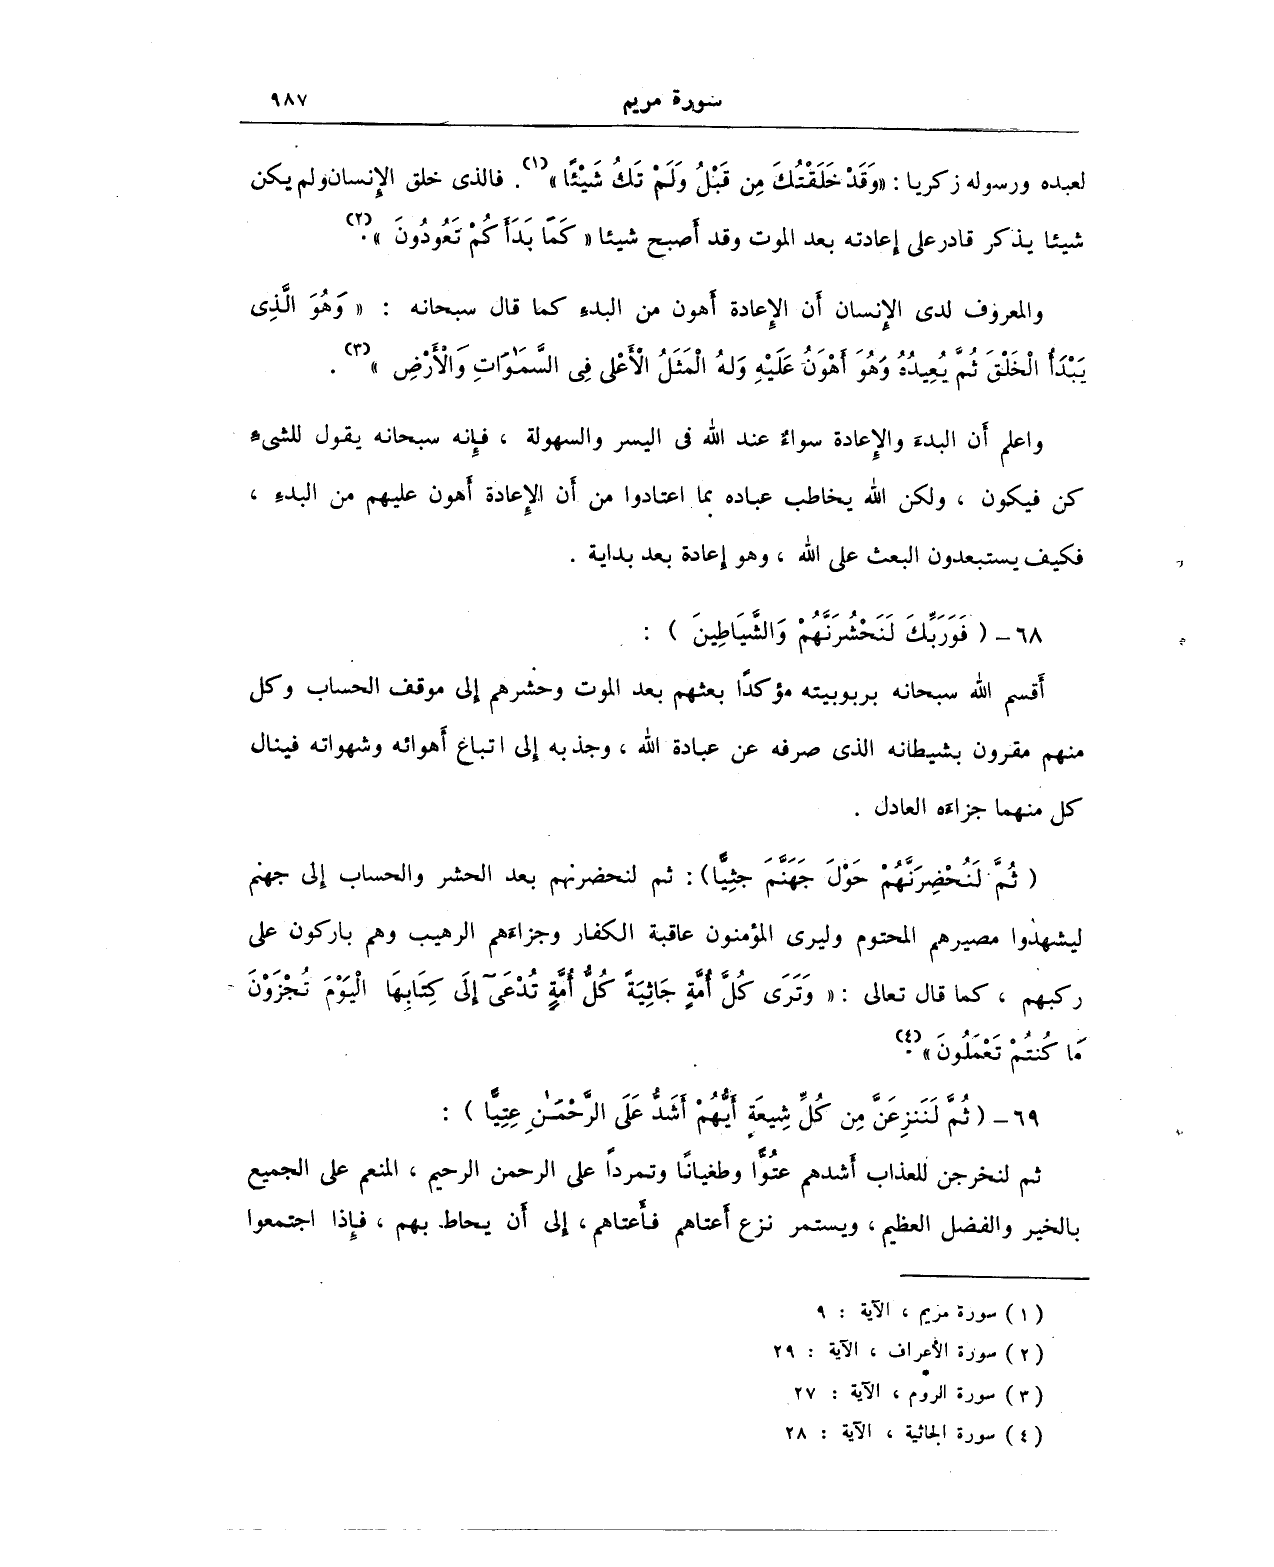 سورة مريم
٩٨٧
لعبده ورسوله زكريا : «وَقَدْ خَلَقْتُكَ مِن قَبْلُ وَلَمْ تَكُ شَيْئًا»(١). فالذى خلق الإِنسان ولم يكن
شيئا يذكر قادر على إعادته بعد الموت وقد أصبح شيئا « كَمَا بَدَأَكُمْ تَعُودُونَ »(٢).
والمعروف لدى الإِنسان أن الإِعادة أهون من البدءِ كما قال سبحانه : « وَهُوَ الَّذِى
يَبْدَأُ الْخَلْقَ ثُمَّ يُعِيدُهُ وَهُوَ أَهْوَنُ عَلَيْهِ وَلهُ الْمَثَلُ الْأَعْلى فِى السَّمَوَاتِ وَالْأَرْضِ »(٣) .
واعلم أن البدءَ والإِعادة سواءٌ عند الله فى اليسر والسهولة ، فإِنه سبحانه يقول للشىءِ
كن فيكون ، ولكن الله يخاطب عباده بما اعتادوا من أن الإِعادة أهون عليهم من البدءِ ،
فكيف يستبعدون البعث على الله ، وهو إعادة بعد بداية .
٦٨ – ( فَوَرَبِّكَ لَنَحْشُرَنَّهُمْ وَالشَّيَاطِينَ ) :
أقسم الله سبحانه بربوبيته مؤكدًا بعثهم بعد الموت وحشرهم إلى موقف الحساب وكل
منهم مقرون بشيطانه الذى صرفه عن عبادة الله ، وجذبه إلى اتباع أهوائه وشهواته فينال
كل منهما جزاءَه العادل .
( ثُمَّ لَنُحْضِرَنَّهُمْ حَوْلَ جَهَنَّمَ جثِيًّا) : ثم لنحضرنهم بعد الحشر والحساب إلى جهنم
ليشهدوا مصيرهم المحتوم وليرى المؤمنون عاقبة الكفار وجزاءَهم الرهيب وهم باركون على
ركبهم ، كما قال تعالى : « وَتَرَى كُلَّ أُمَّةٍ جَاثِيَةً كُلُّ أُمَّةٍ تُدْعَىٓ إلَى كِتَابِهَا الْيَوْمَ تُجْزَوْنَ
مَا كُنتُمْ تَعْمَلُونَ »(٤).
٦٩ – ( ثُمَّ لَنَنزِعَنَّ مِن كُلِّ شِيعَةٍ أَيُّهُمْ أَشَدُّ عَلَى الرَّحْمَٰنِ عِتِيًّا ) :
ثم لنخرجن للعذاب أشدهم عتُوًّا وطغيانًا وتمرداً على الرحمن الرحيم ، المنعم على الجميع
بالخير والفضل العظيم ، ويستمر نزع أعتاهم فأَعتاهم ، إلى أن يحاط بهم ، فإِذا اجتمعوا
(١) سورة مريم ، الآية : ٩
(٢) سورة الأعراف ، الآية : ٢٩
(٣) سورة الروم ، الآية : ٢٧
(٤) سورة الجاثية ، الآية : ٢٨